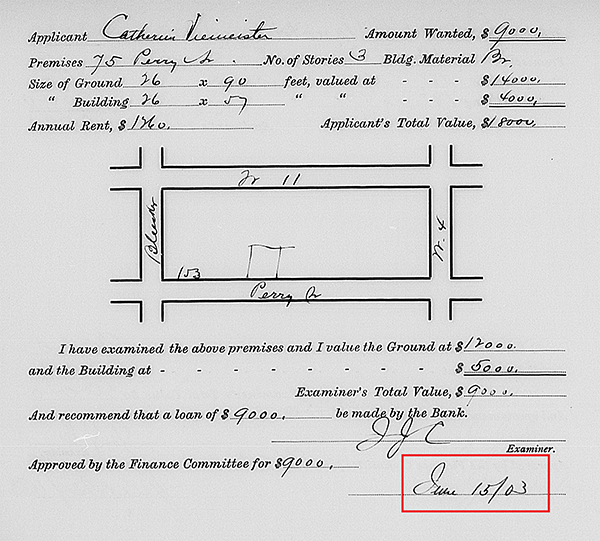 Applicant Catherin Viemeister Amount Wanted, $ 9000,
Premises 75 Perry St. No. of Stories 3 Bldg. Material Br.
Size of Ground 26 x 90 feet, valued at - - - $ 14000
" Building 26 x 57 " " - - - $ 4000,
Annual Rent, $ 1260. Applicant's Total Value, $ 18000.
W 11
Bleecker
W. 4
153
Perry St
I have examined the above premises and I value the Ground at $ 12000
and the Building at - - - - - - - - - $ 5000.
Examiner's Total Value, $ 9000.
And recommend that a loan of $ 9000, be made by the Bank.
J J C
Examiner.
Approved by the Finance Committee for $ 9000,
June 15/03